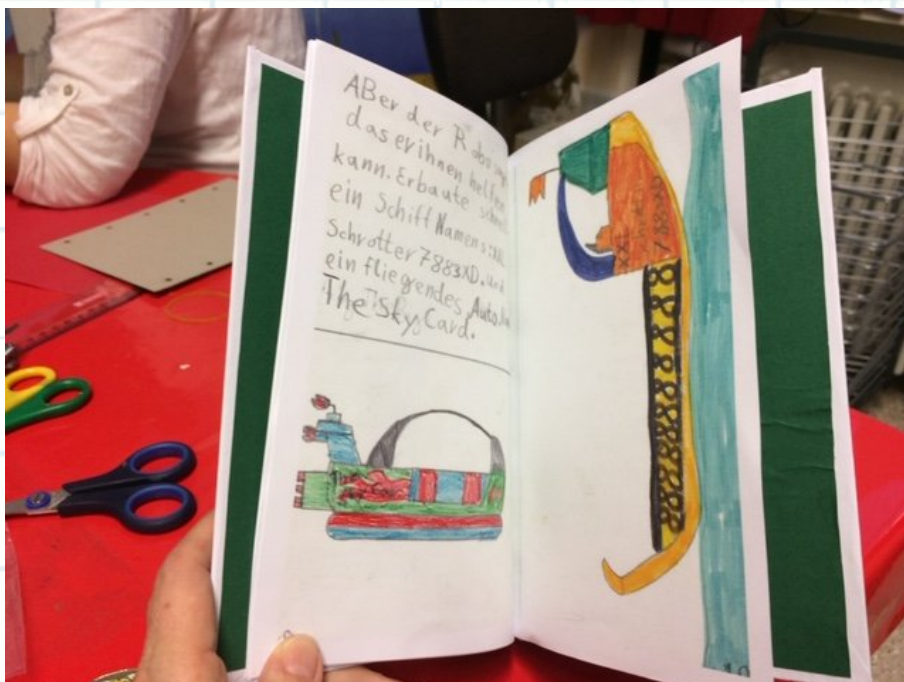 ABer der Robo
das er ihnen helfen
kann. Er baute schnell
ein Schiff Namens:
Schrotter 7883XD. und
ein fliegendes Auto
The Sky Card.
The
XXL
788 XD